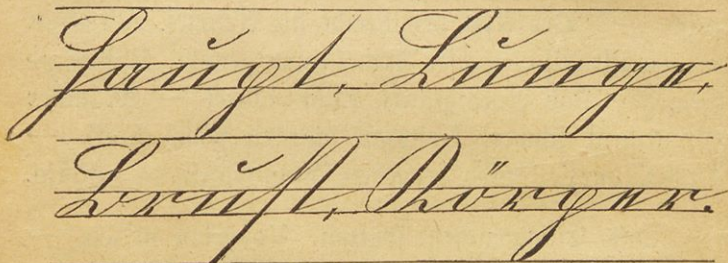 Haupt, Lunge,
Brust, Körper.